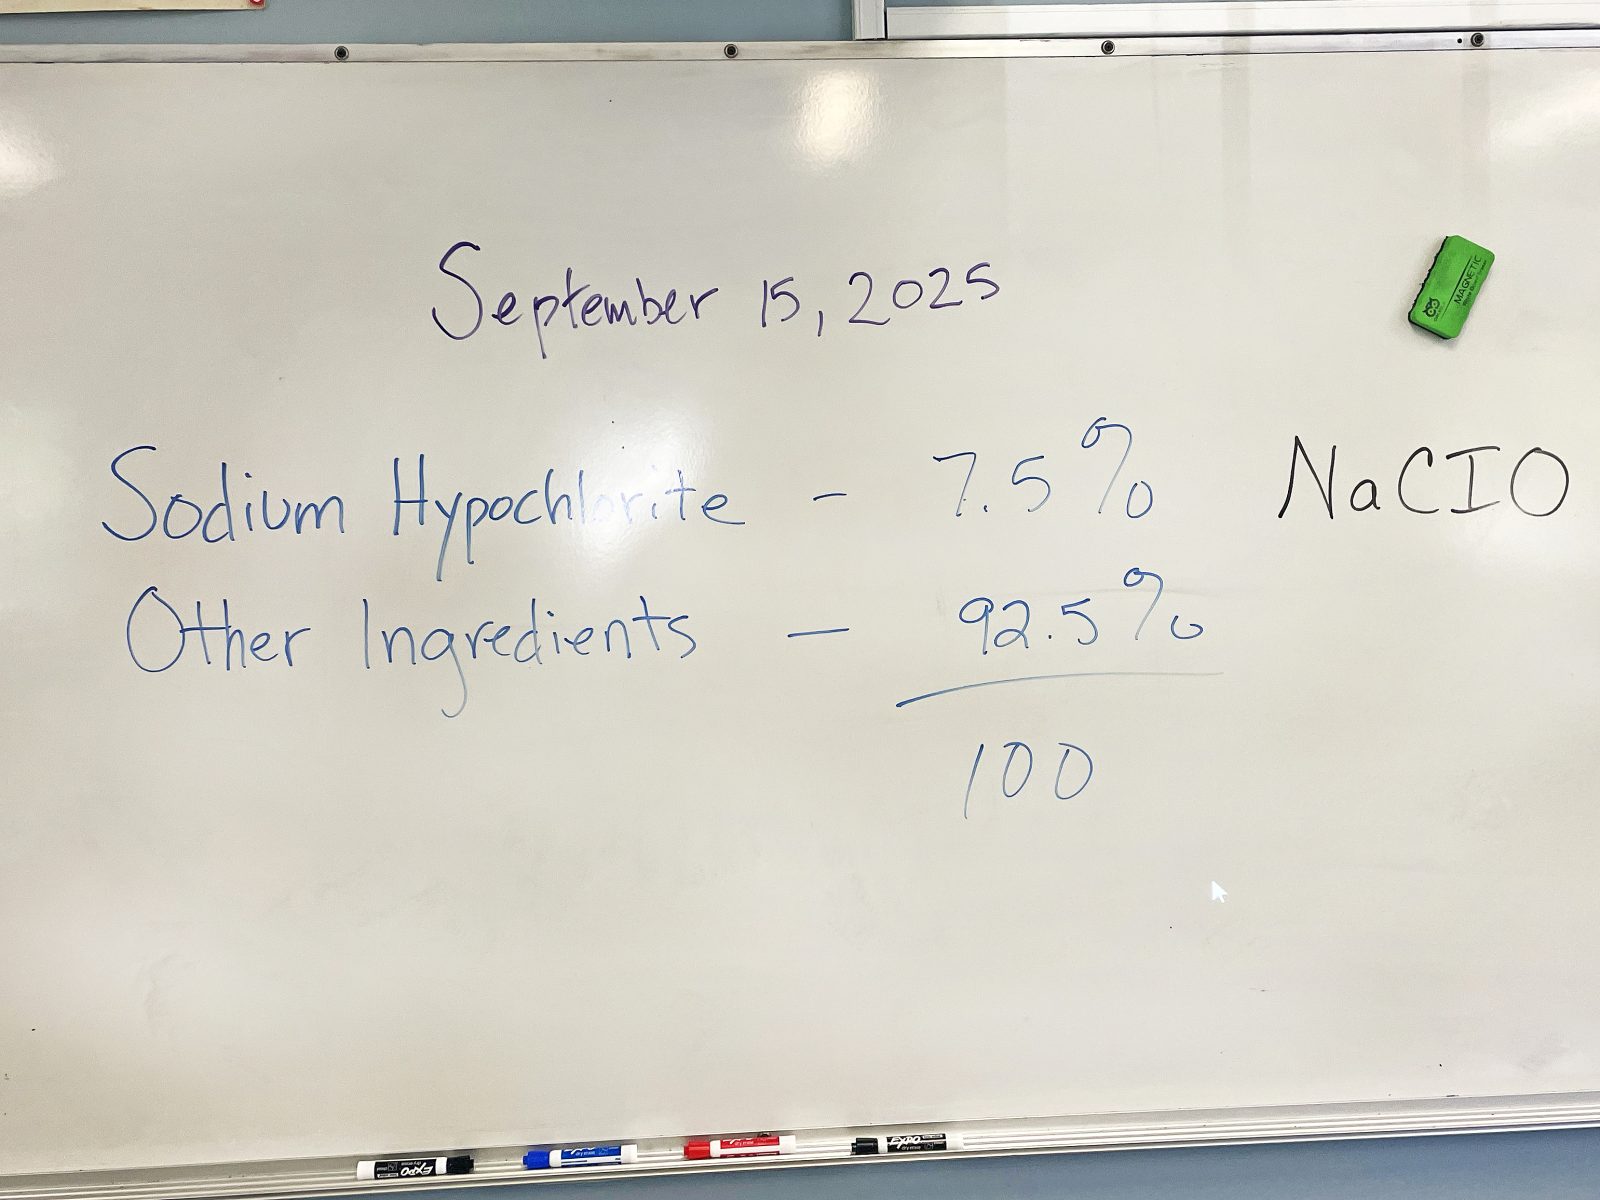 September 15, 2025
Sodium Hypochlorite - 7.5% NaCIO
Other Ingredients - 92.5%
100
MAGNETIC
EXPO
EXPO